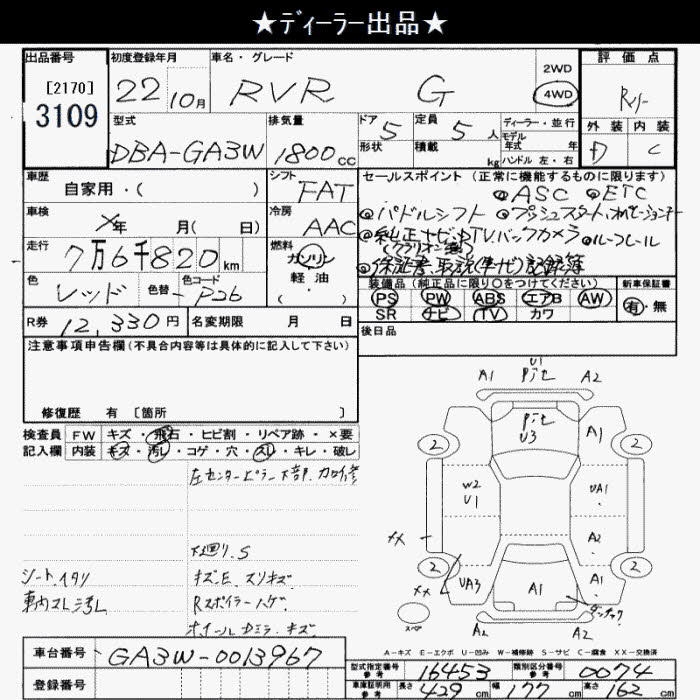 ★ディーラー出品★
出品番号 初度登録年月 車名・グレード 評価点
[2170]
3109
22 10月 RVR G 2WD 4WD
型式 排気量 ドア 定員 ディーラー・並行
DBA-GA3W 1800cc 5 5人
形状 積載 kg モデル年式 年
ハンドル 左・右
外装 内装
D C
車歴 シフト セールスポイント (正常に機能するものに限ります)
自家用・( ) FAT
◎ASC ◎ETC
車検 冷房 ◎パドルシフト ◎プッシュスタート
年 月( 日) AAC
◎純正ナビ TVバックカメラ ◎ルーフレール
走行 燃料
7万6千820km ガソリン
軽油
・( )
◎保証書、取説(車ナビ)記録簿
色 色替 色コード
レッド P26
装備品 (純正品に限り○をつけてください) 新車保証書
PS PW ABS エアB AW 有・無
SR ナビ TV カワ
R券 12,330円 名変期限 月 日
後日品
注意事項申告欄(不具合内容等は具体的に記入して下さい)
修復歴 有 [箇所 ]
検査員 FW キズ・飛石・ヒビ割・リペア跡・×要
記入欄 内装 キズ・汚レ・コゲ・穴・スレ・キレ・破レ
左センターピラー下部 加修
下廻り.S
シート.イタリ キズ.E.スリキズ
車内スレ汚レ Rスポイラーハゲ.
ホイールDミラーキズ
U1
A1 A2
U3
2 A1 2
W2
U1
UA1
××
A2
2 UA3 A1 A2 2
××
A2 A2
A-キズ E-エクボ U-凹み W-補修跡 S-サビ C-腐食 XX-交換済
車台番号 GA3W-0013967
登録番号
型式指定番号 参考 16453 類別区分番号 参考 0074
車庫証明用 参考 長さ 429cm 幅 177cm 高さ 162cm